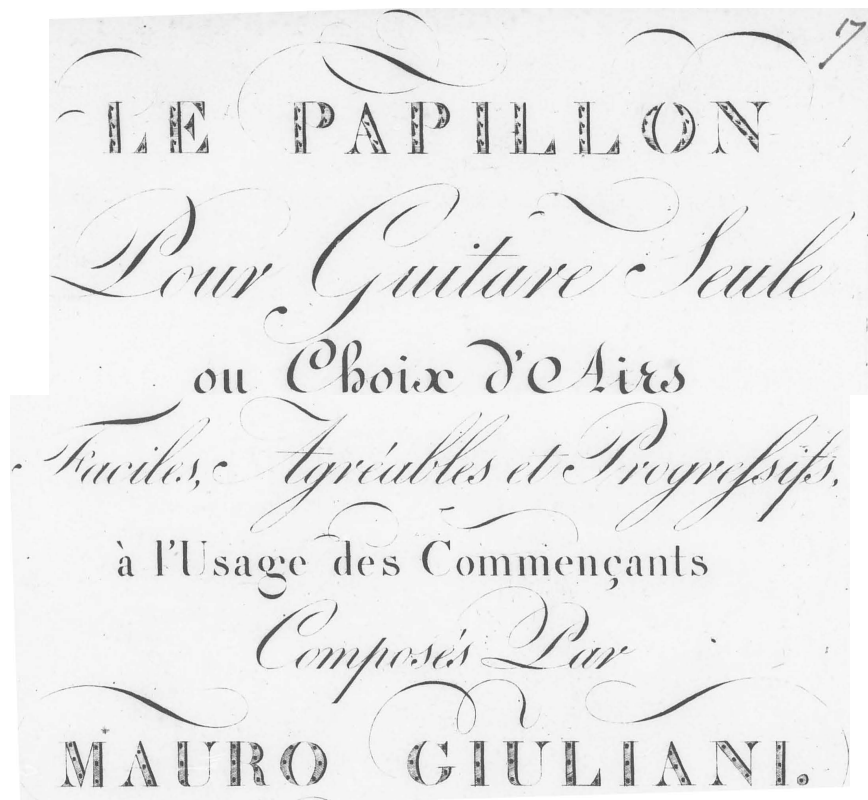 17
LE PAPILLON
Pour Guitare Seule
ou Choix d'Airs
Faciles, Agréables et Progressifs,
à l'Usage des Commençants
Composés Par
MAURO GIULIANI.